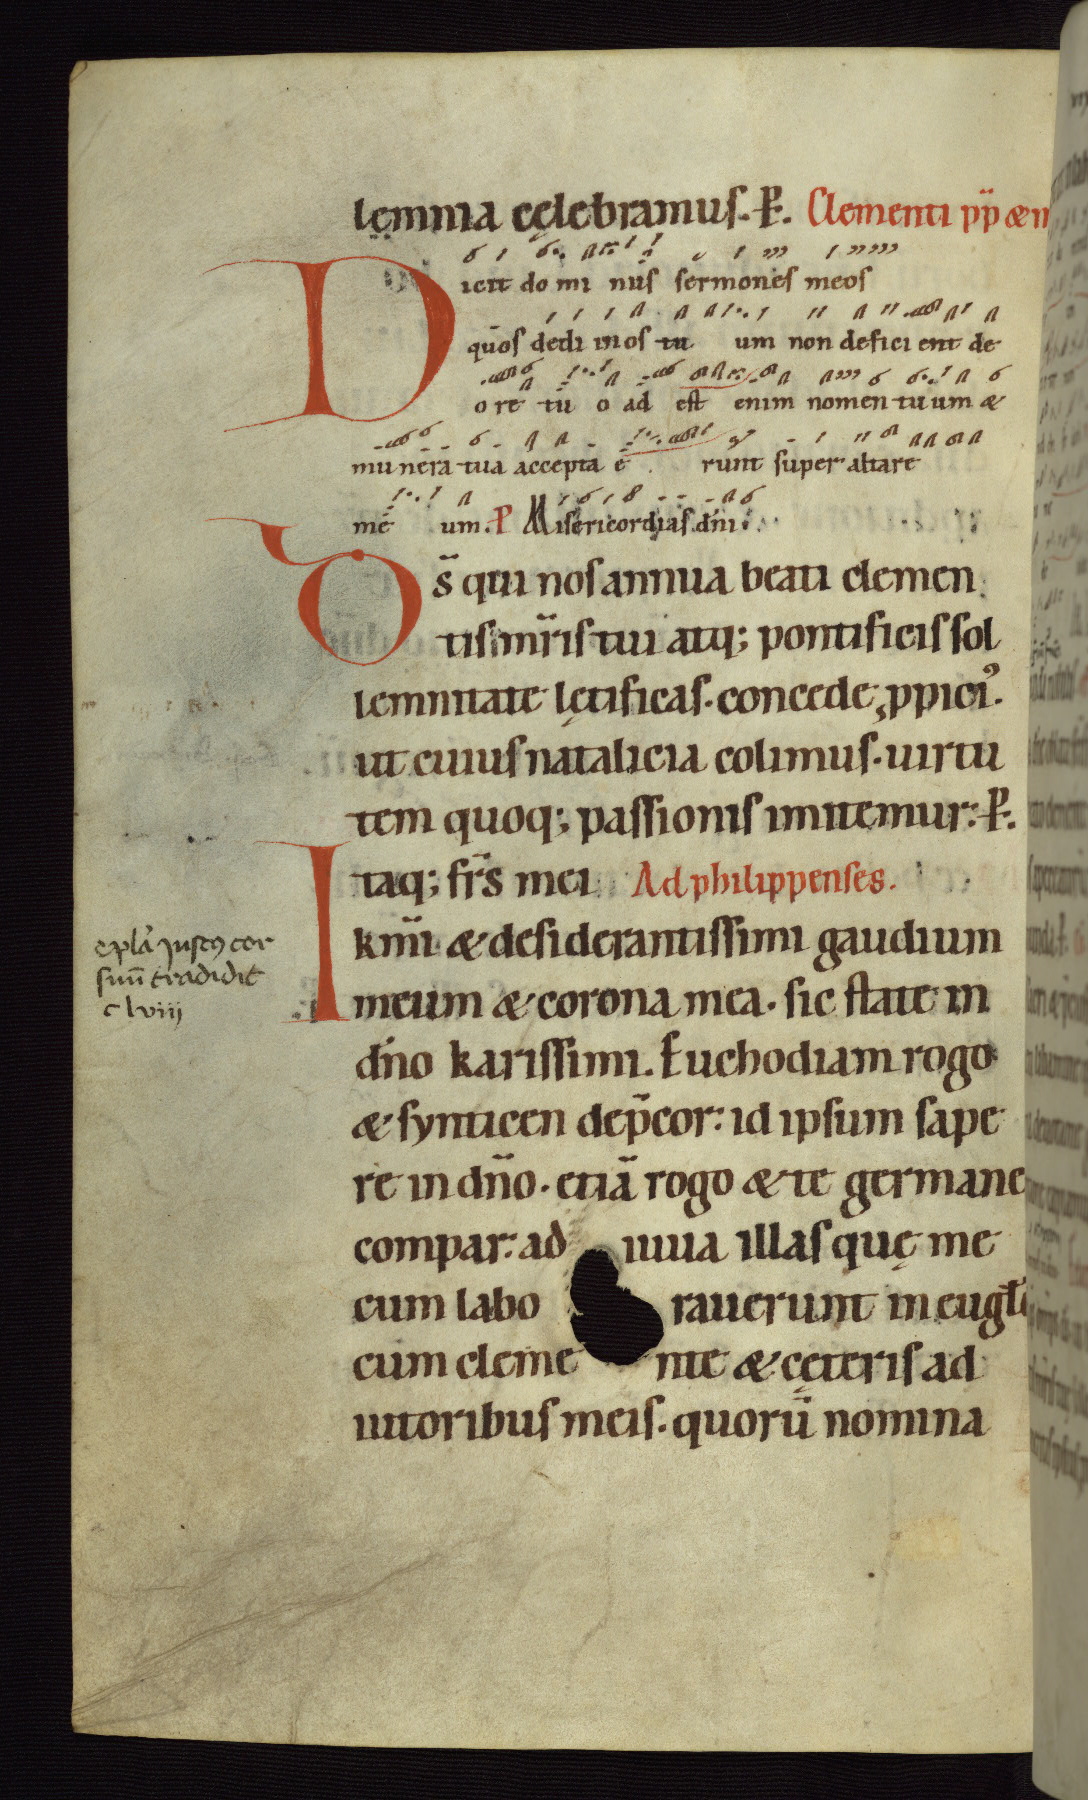 lemnia celebramus. P. Clementi pp̄ æ m
Dicit do mi nus sermones meos
quos dedi in os tu um non defici ent de
o re tu o ad est enim nomen tu um &
mu nera tua accepta e runt super altare
me um. P Misericordias dn̄i.
Ds̄ qui nos annua beati clemen
tis mr̄is tui atq; pontificis sol
lemnitate lętificas. concede ppici᾿.
ut cuius natalicia colimus. uirtu
tem quoq; passionis imitemur: P.
Itaq; fr̄s mei Ad philippenses.
km̄i & desiderantissimi gaudium
meum & corona mea. sic state in
dn̄o karissimi. Euchodiam rogo
& synticen dep̄cor: id ipsum sape
re in dn̄o. etiā rogo & te germane
compar: ad iuua illas quę me
cum labo rauerunt in eugl̄i
cum cleme nte & cęteris ad
iutoribus meis. quorū nomina
epl̄a Justꝯ cor
suū tradidit
clviij